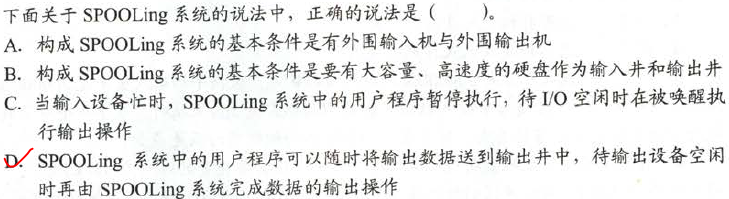 下面关于 SPOOLing 系统的说法中，正确的说法是（　　）。
A. 构成 SPOOLing 系统的基本条件是有外围输入机与外围输出机
B. 构成 SPOOLing 系统的基本条件是要有大容量、高速度的硬盘作为输入井和输出井
C. 当输入设备忙时，SPOOLing 系统中的用户程序暂停执行，待 I/O 空闲时在被唤醒执
行输出操作
D. SPOOLing 系统中的用户程序可以随时将输出数据送到输出井中，待输出设备空闲
时再由 SPOOLing 系统完成数据的输出操作